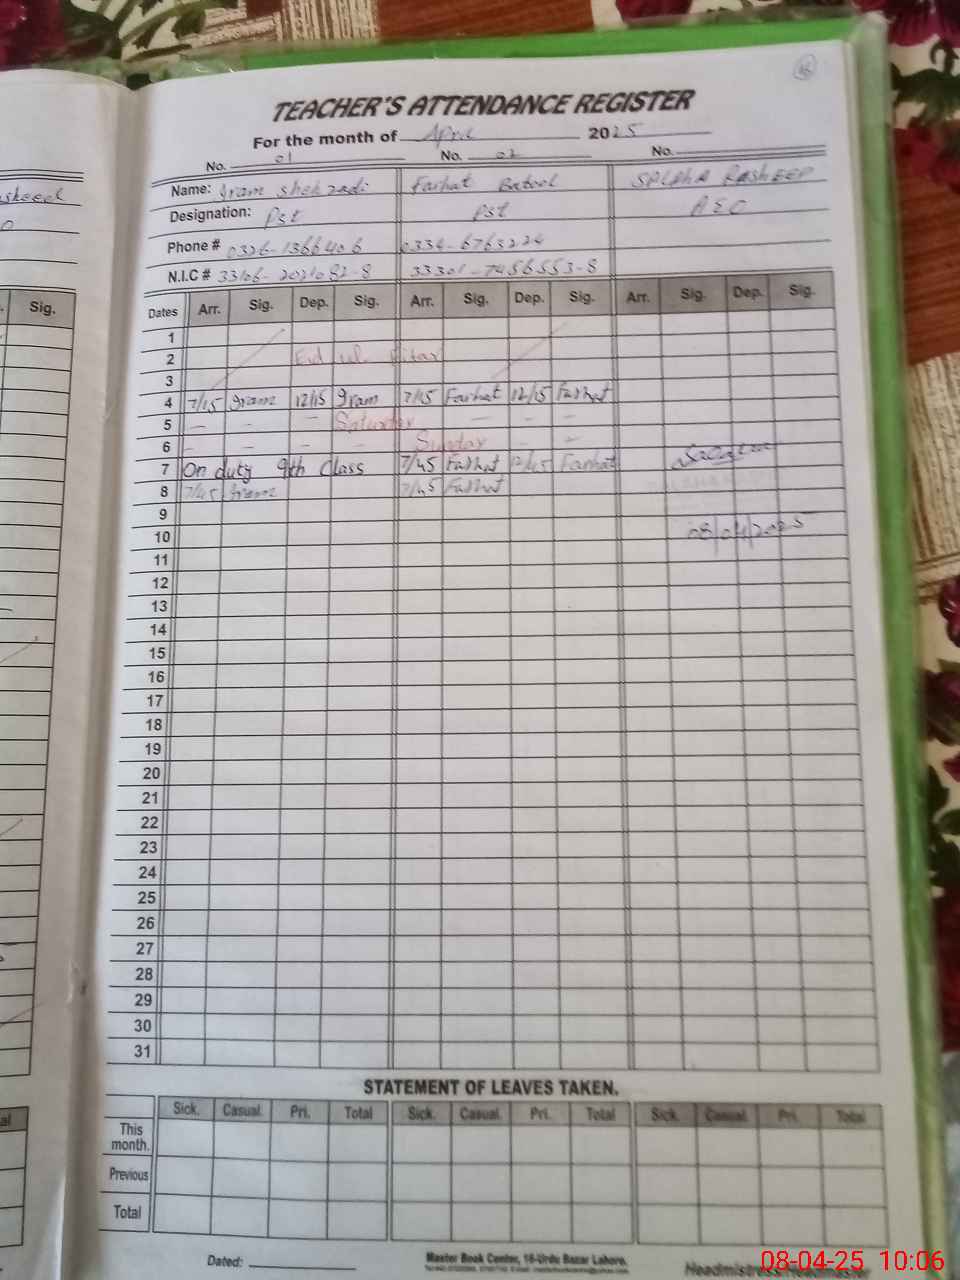 TEACHER'S ATTENDANCE REGISTER
For the month of April 2025
No. 01 No. 02 No.
Name: Iram Shehzadi Farhat Batool SALEHA RASHEED
Designation: Pst Pst AEO
Phone # 0326-1366406 0334-6763224
N.I.C # 33106-2021082-8 33301-7456553-8
Sig. Dates Arr. Sig. Dep. Sig. Arr. Sig. Dep. Sig. Arr. Sig. Dep. Sig.
1
2 Eid ul Fitar
3
4 7/15 Iram 12/15 Iram 7/15 Farhat 12/15 Farhat
5 — – – Saturday – –
6 – – – – Sunday – –
7 On duty 9th Class 7/45 Farhat 12/45 Farhat
8 7/45 Iram 7/45 Farhat
9
10 08/04/2025
11
12
13
14
15
16
17
18
19
20
21
22
23
24
25
26
27
28
29
30
31
STATEMENT OF LEAVES TAKEN.
Sick. Casual. Pri. Total Sick. Casual. Pri. Total Sick. Casual. Pri. Total
This
month.
Previous
Total
Dated:
Master Book Center, 16-Urdu Bazar Lahore.
Headmistress/Headmaster
08-04-25 10:06